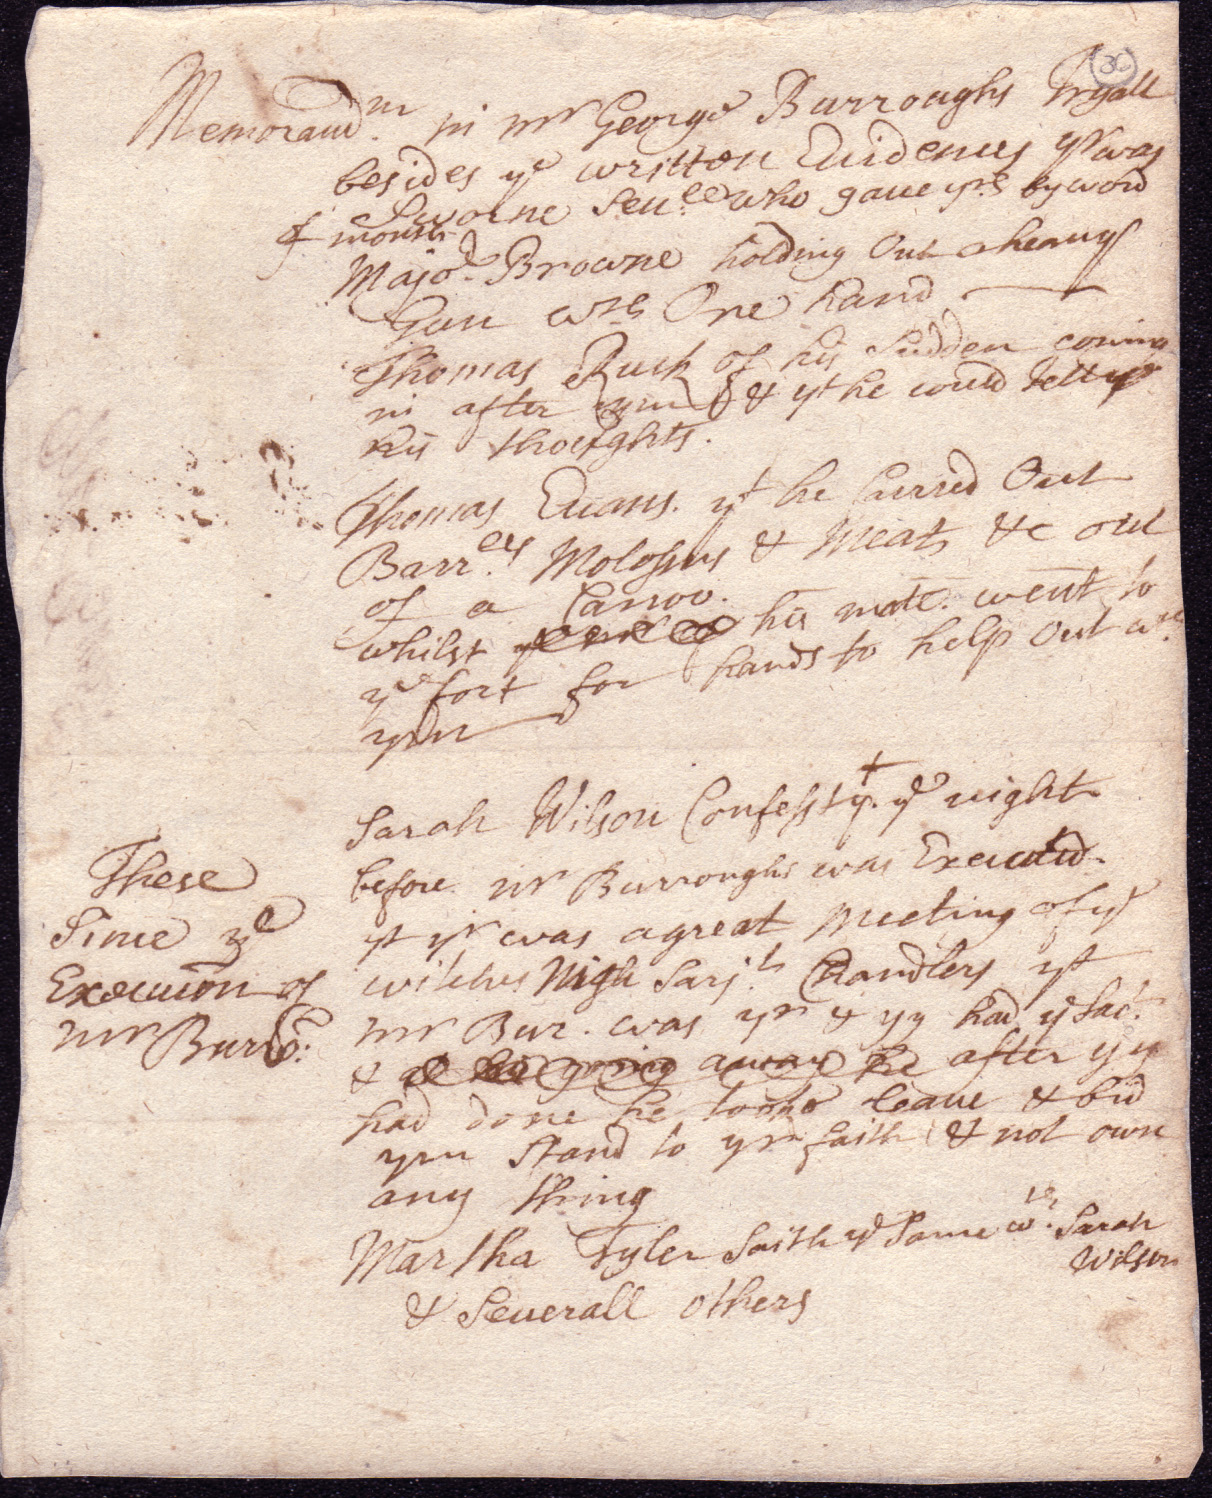 (36)
Memorand^m in m^r George Burroughs Tryall
besides y^e written Euidences y^r was
Sworne Seu^ell who gaue y^rs by word
of mouth
Majo^r Browne holding Out a heauy
Gun w^th One hand
Thomas Ruck of his sudden coming
in after ym & y^t he could tell yr
his thoughts.
Thomas Euans. y^t he Carried Out
Barr^els Molossus & Meat &c out
of a Canoo.
whilst his mate. went to
y^e fort for hands to help Out w^th
ym
Sarah Wilson Confesst y^t. y^e night
before. m^r Burroughs was Executed.
yt y^r was a great Meeting of y^e
witches Nigh Sarj^ts Chandlers y^t
m^r Bur. was y^r & yy had y^e Sac^t.
& going away he after yy
had done he tooke leaue & bid
ym Stand to y^r faith & not own
any thing
Martha Tyler Saith y^e Same w^th. Sarah
Wilson
& Seuerall others
These
Since y^e
Execution of
m^r Burro: